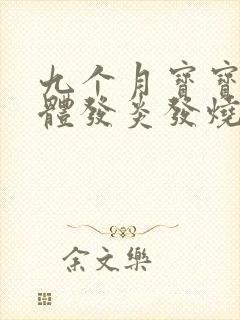 九个月寶寶
體發炎發燒
余文樂